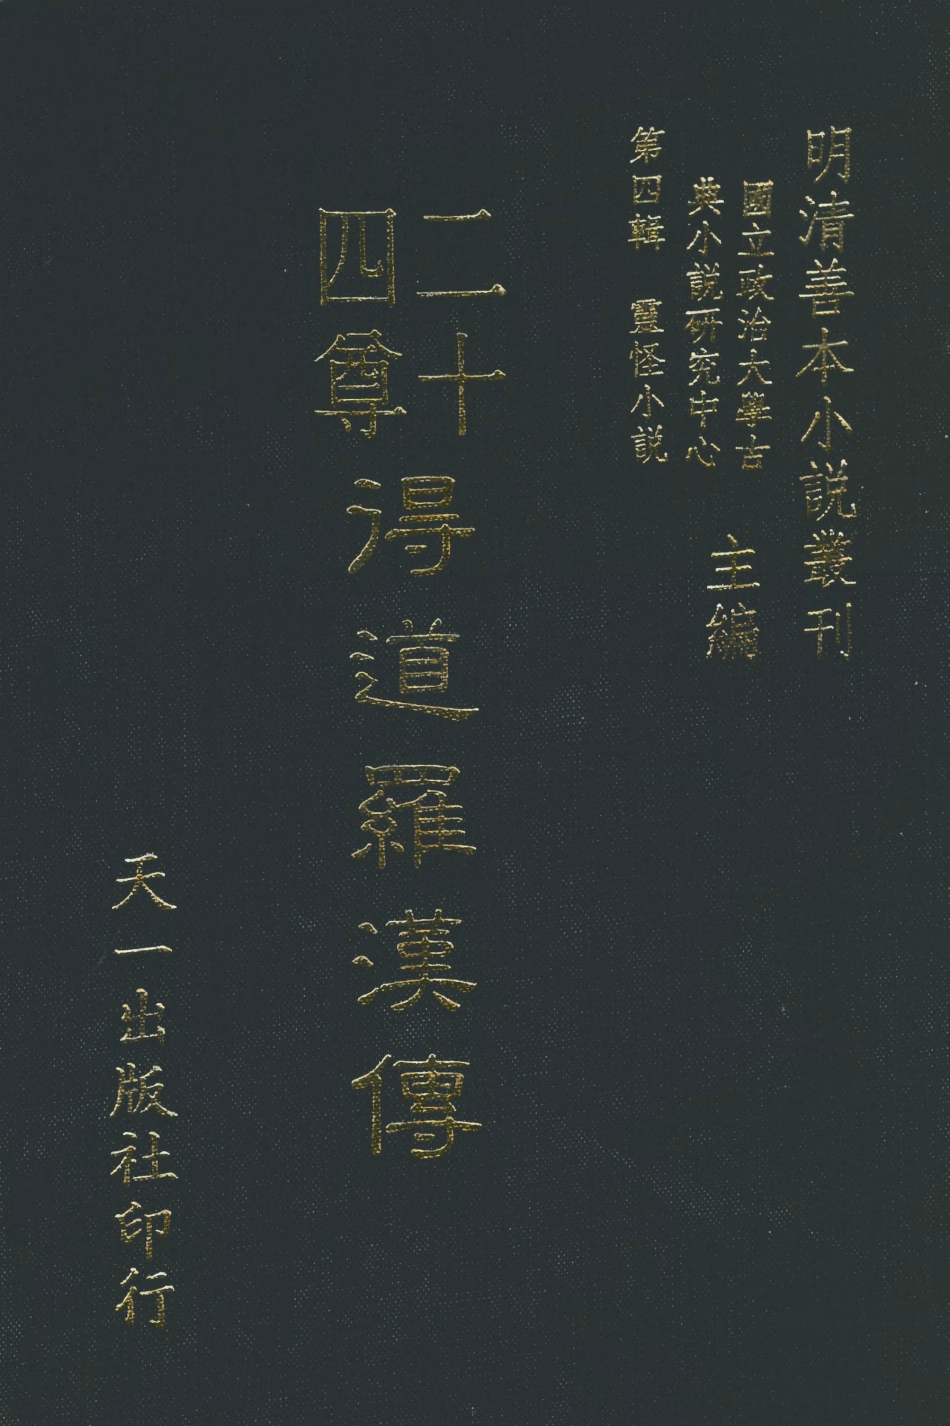 明清善本小説叢刊
國立政治大學古
典小説研究中心
主編
第四輯 靈怪小説
二十
四尊
得道羅漢傳
天一出版社印行